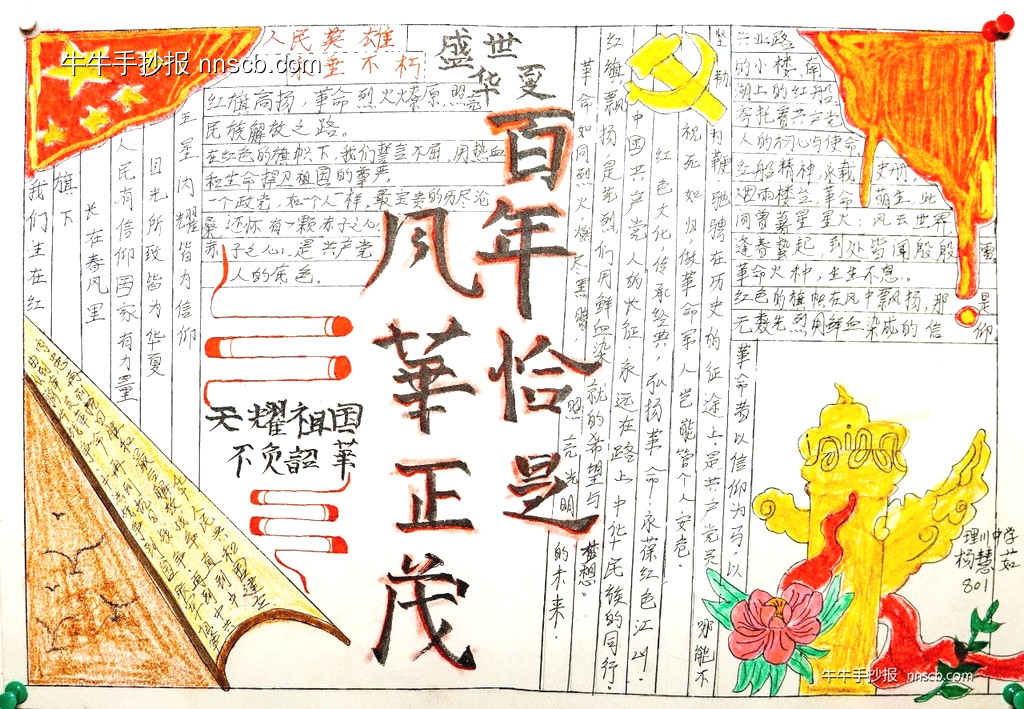 牛牛手抄报 nnscb.com
人民英雄
垂不朽
盛世
华夏
百年恰是
风華正茂
红旗高扬,革命烈火燎原,照亮
民族解放之路。
在红色的旗帜下,我们誓言不屈,用热血
和生命捍卫祖国的尊严
一个政党,和一个人一样,最宝贵的历尽沧
桑,还怀有一颗赤子之心
赤子之心,是共产党
人的底色。
五星闪耀皆为信仰
目光所致皆为华夏
人民有信仰国家有力量
长在春风里
旗下
我们生在红
天耀祖国
不负韶華
革命如同烈火燎原,照亮光明的未来!
红旗飘扬是先烈们用鲜血染就的希望与梦想。
中国共产党人的长征永远在路上中华民族的同行!
红色文化,传承经典,弘扬革命永葆红色江山!
视死如归,做革命军人岂能管个人安危。
哪能不
坚勒
为鞍驰骋在历史的征途上是共产党员
革命者以信仰为马,以
兴业路
的小楼,南
湖上的红船
寄托着共产党
人的初心与使命
红船精神,永载史册
烟雨楼兰,革命萌生,此
间曾著星星火;风云世界
逢春蛰起,到处皆闻殷殷雷
革命火种,生生不息。
红色的旗帜在风中飘扬,那是
无数先烈用鲜血染成的信仰。
理川中学
杨慧茹
801
牛牛手抄报 nnscb.com